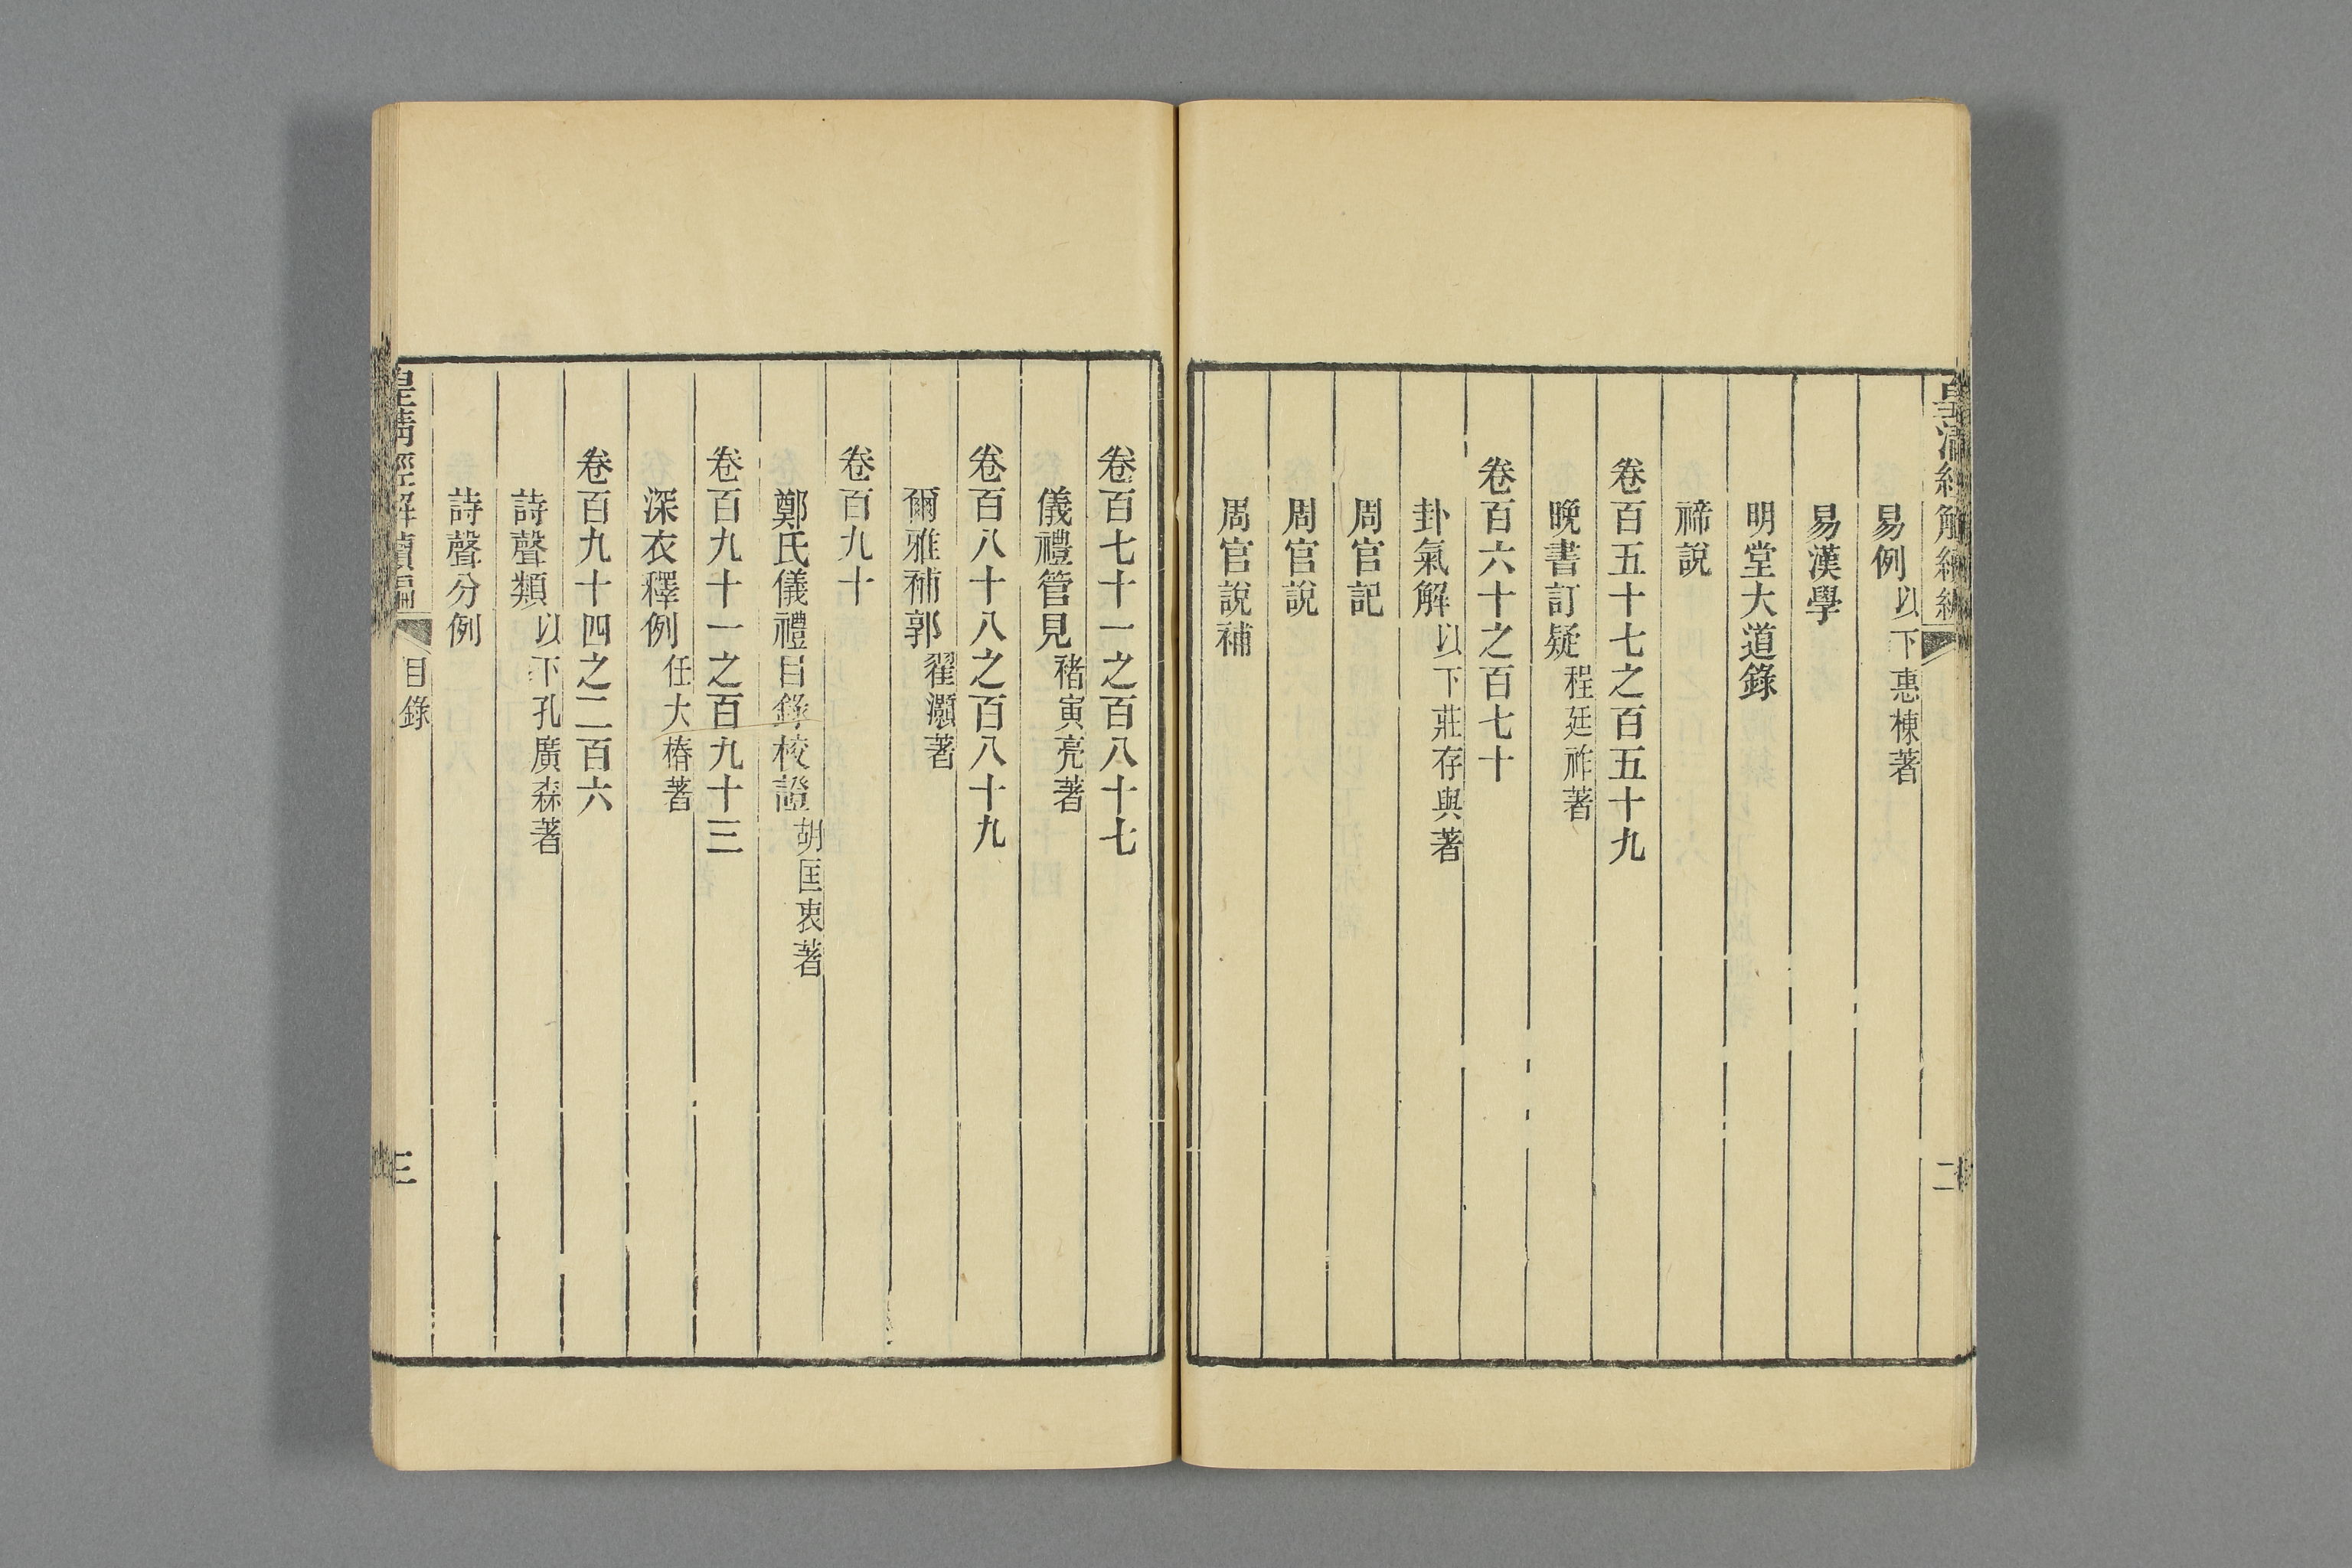 易例以下惠棟著
易漢學
明堂大道錄
禘說
卷百五十七之百五十九
晚書訂疑程廷祚著
卷百六十之百七十
卦氣解以下莊存與著
周官記
周官說
周官說補
二
卷百七十一之百八十七
儀禮管見褚寅亮著
卷百八十八之百八十九
爾雅補郭翟灝著
卷百九十
鄭氏儀禮目錄校證胡匡衷著
卷百九十一之百九十三
深衣釋例任大椿著
卷百九十四之二百六
詩聲類以下孔廣森著
詩聲分例
皇清經解續編
目錄
三